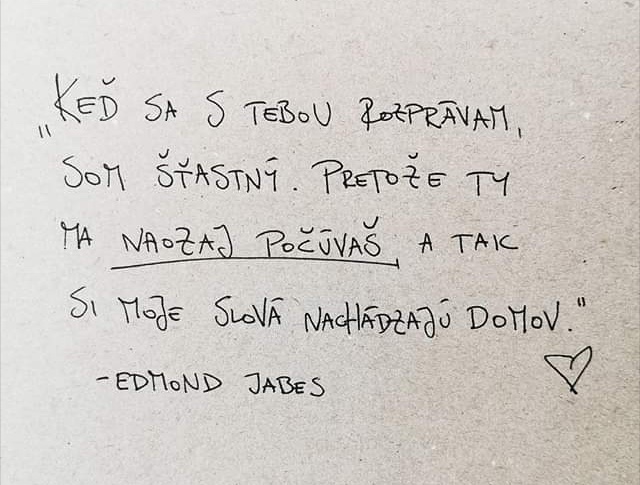 „KEĎ SA S TEBOU ROZPRÁVAM,
SOM ŠŤASTNÝ. PRETOŽE TY
MA NAOZAJ POČÚVAŠ, A TAK
SI MOJE SLOVÁ NACHÁDZAJÚ DOMOV."
-EDMOND JABES